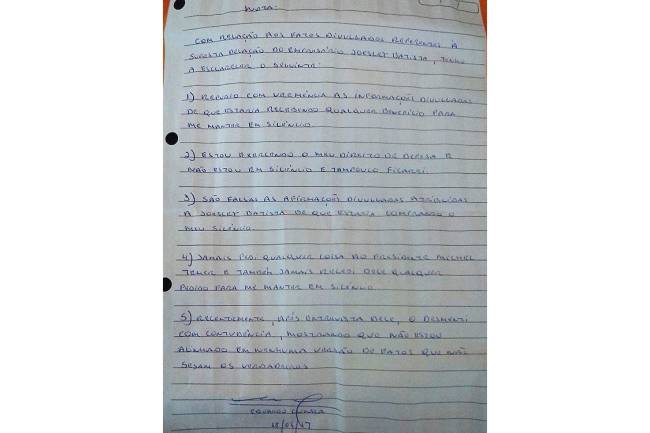 NOTA:
COM RELAÇÃO AOS FATOS DIVULGADOS REFERENTES À
SUPOSTA DELAÇÃO DO EMPRESÁRIO JOESLEY BATISTA, TENHO
A ESCLARECER O SEGUINTE:
1) REPUDIO COM VEEMÊNCIA AS INFORMAÇÕES DIVULGADAS
DE QUE ESTARIA RECEBENDO QUALQUER BENEFÍCIO PARA
ME MANTER EM SILÊNCIO.
2) ESTOU EXERCENDO O MEU DIREITO DE DEFESA E
NÃO ESTOU EM SILÊNCIO E TAMPOUCO FICAREI.
3) SÃO FALSAS AS AFIRMAÇÕES DIVULGADAS ATRIBUIDAS
A JOESLEY BATISTA DE QUE ESTARIA COMPRANDO O
MEU SILÊNCIO.
4) JAMAIS PEDI QUALQUER COISA AO PRESIDENTE MICHEL
TEMER E TAMBÉM JAMAIS RECEBI DELE QUALQUER
PEDIDO PARA ME MANTER EM SILÊNCIO.
5) RECENTEMENTE, APÓS ENTREVISTA DELE, O DESMENTI
COM CONTUNDÊNCIA, MOSTRANDO QUE NÃO ESTOU
ALINHADO EM NENHUMA VERSÃO DE FATOS QUE NÃO
SEJAM OS VERDADEIROS
EDUARDO CUNHA
18/05/17